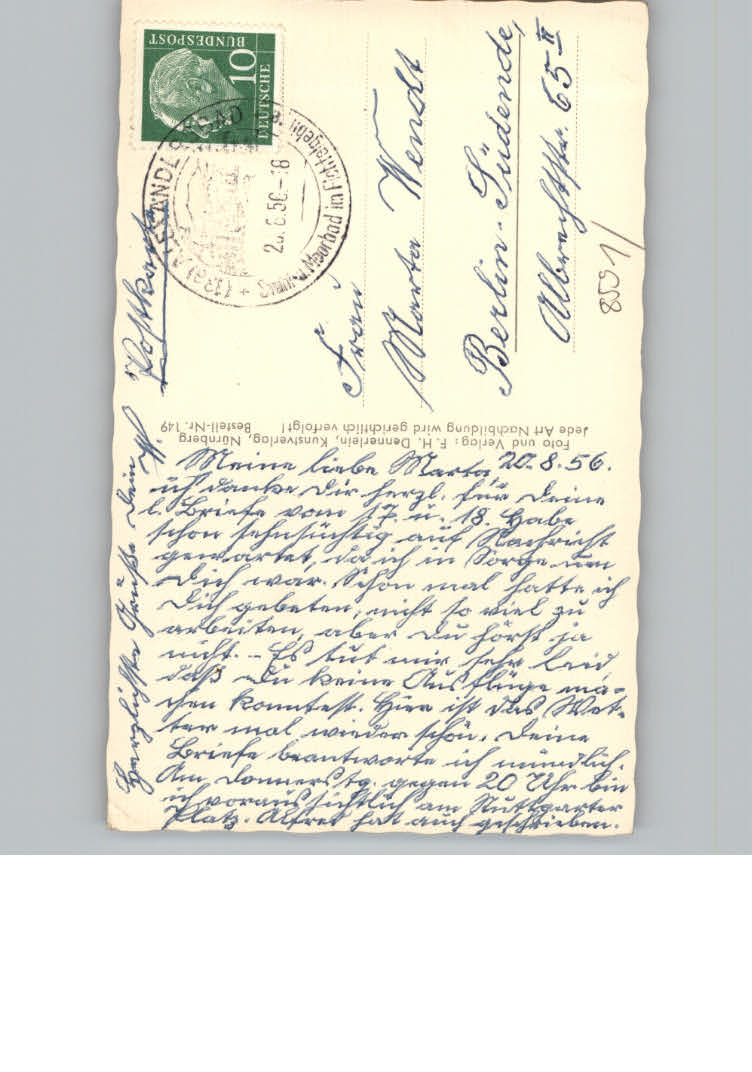 DEUTSCHE
BUNDESPOST
10
(13a) ALEXANDERSBAD
20.8.56.-18
u. Moorbad im Fichtelgebirge
Postkarte
Frau
Marta Wendt
Berlin-Südende,
Albrechtstr. 65 II
8591/
Foto und Verlag: F. H. Dennerlein, Kunstverlag, Nürnberg
Jede Art Nachbildung wird gerichtlich verfolgt! Bestell-Nr. 149
20.8.56.
Meine liebe Marta
ich danke Dir herzl. für Deine
l. Briefe vom 17. u. 18. Habe
schon sehnsüchtig auf Nachricht
gewartet, da ich in Sorge um
Dich war. Schon mal hatte ich
Dich gebeten, nicht so viel zu
arbeiten, aber Du hörst ja
nicht. - Es tut mir sehr leid
daß Du keine Ausflüge ma-
chen konntest. Hier ist das Wet-
ter mal wieder schön. Deine
Briefe beantworte ich mündlich.
Am Donnerstg. gegen 20 Uhr bin
ich voraussichtlich am Stuttgarter
Platz. Alfred hat auch geschrieben.
Herzlichste Grüße Dein W.